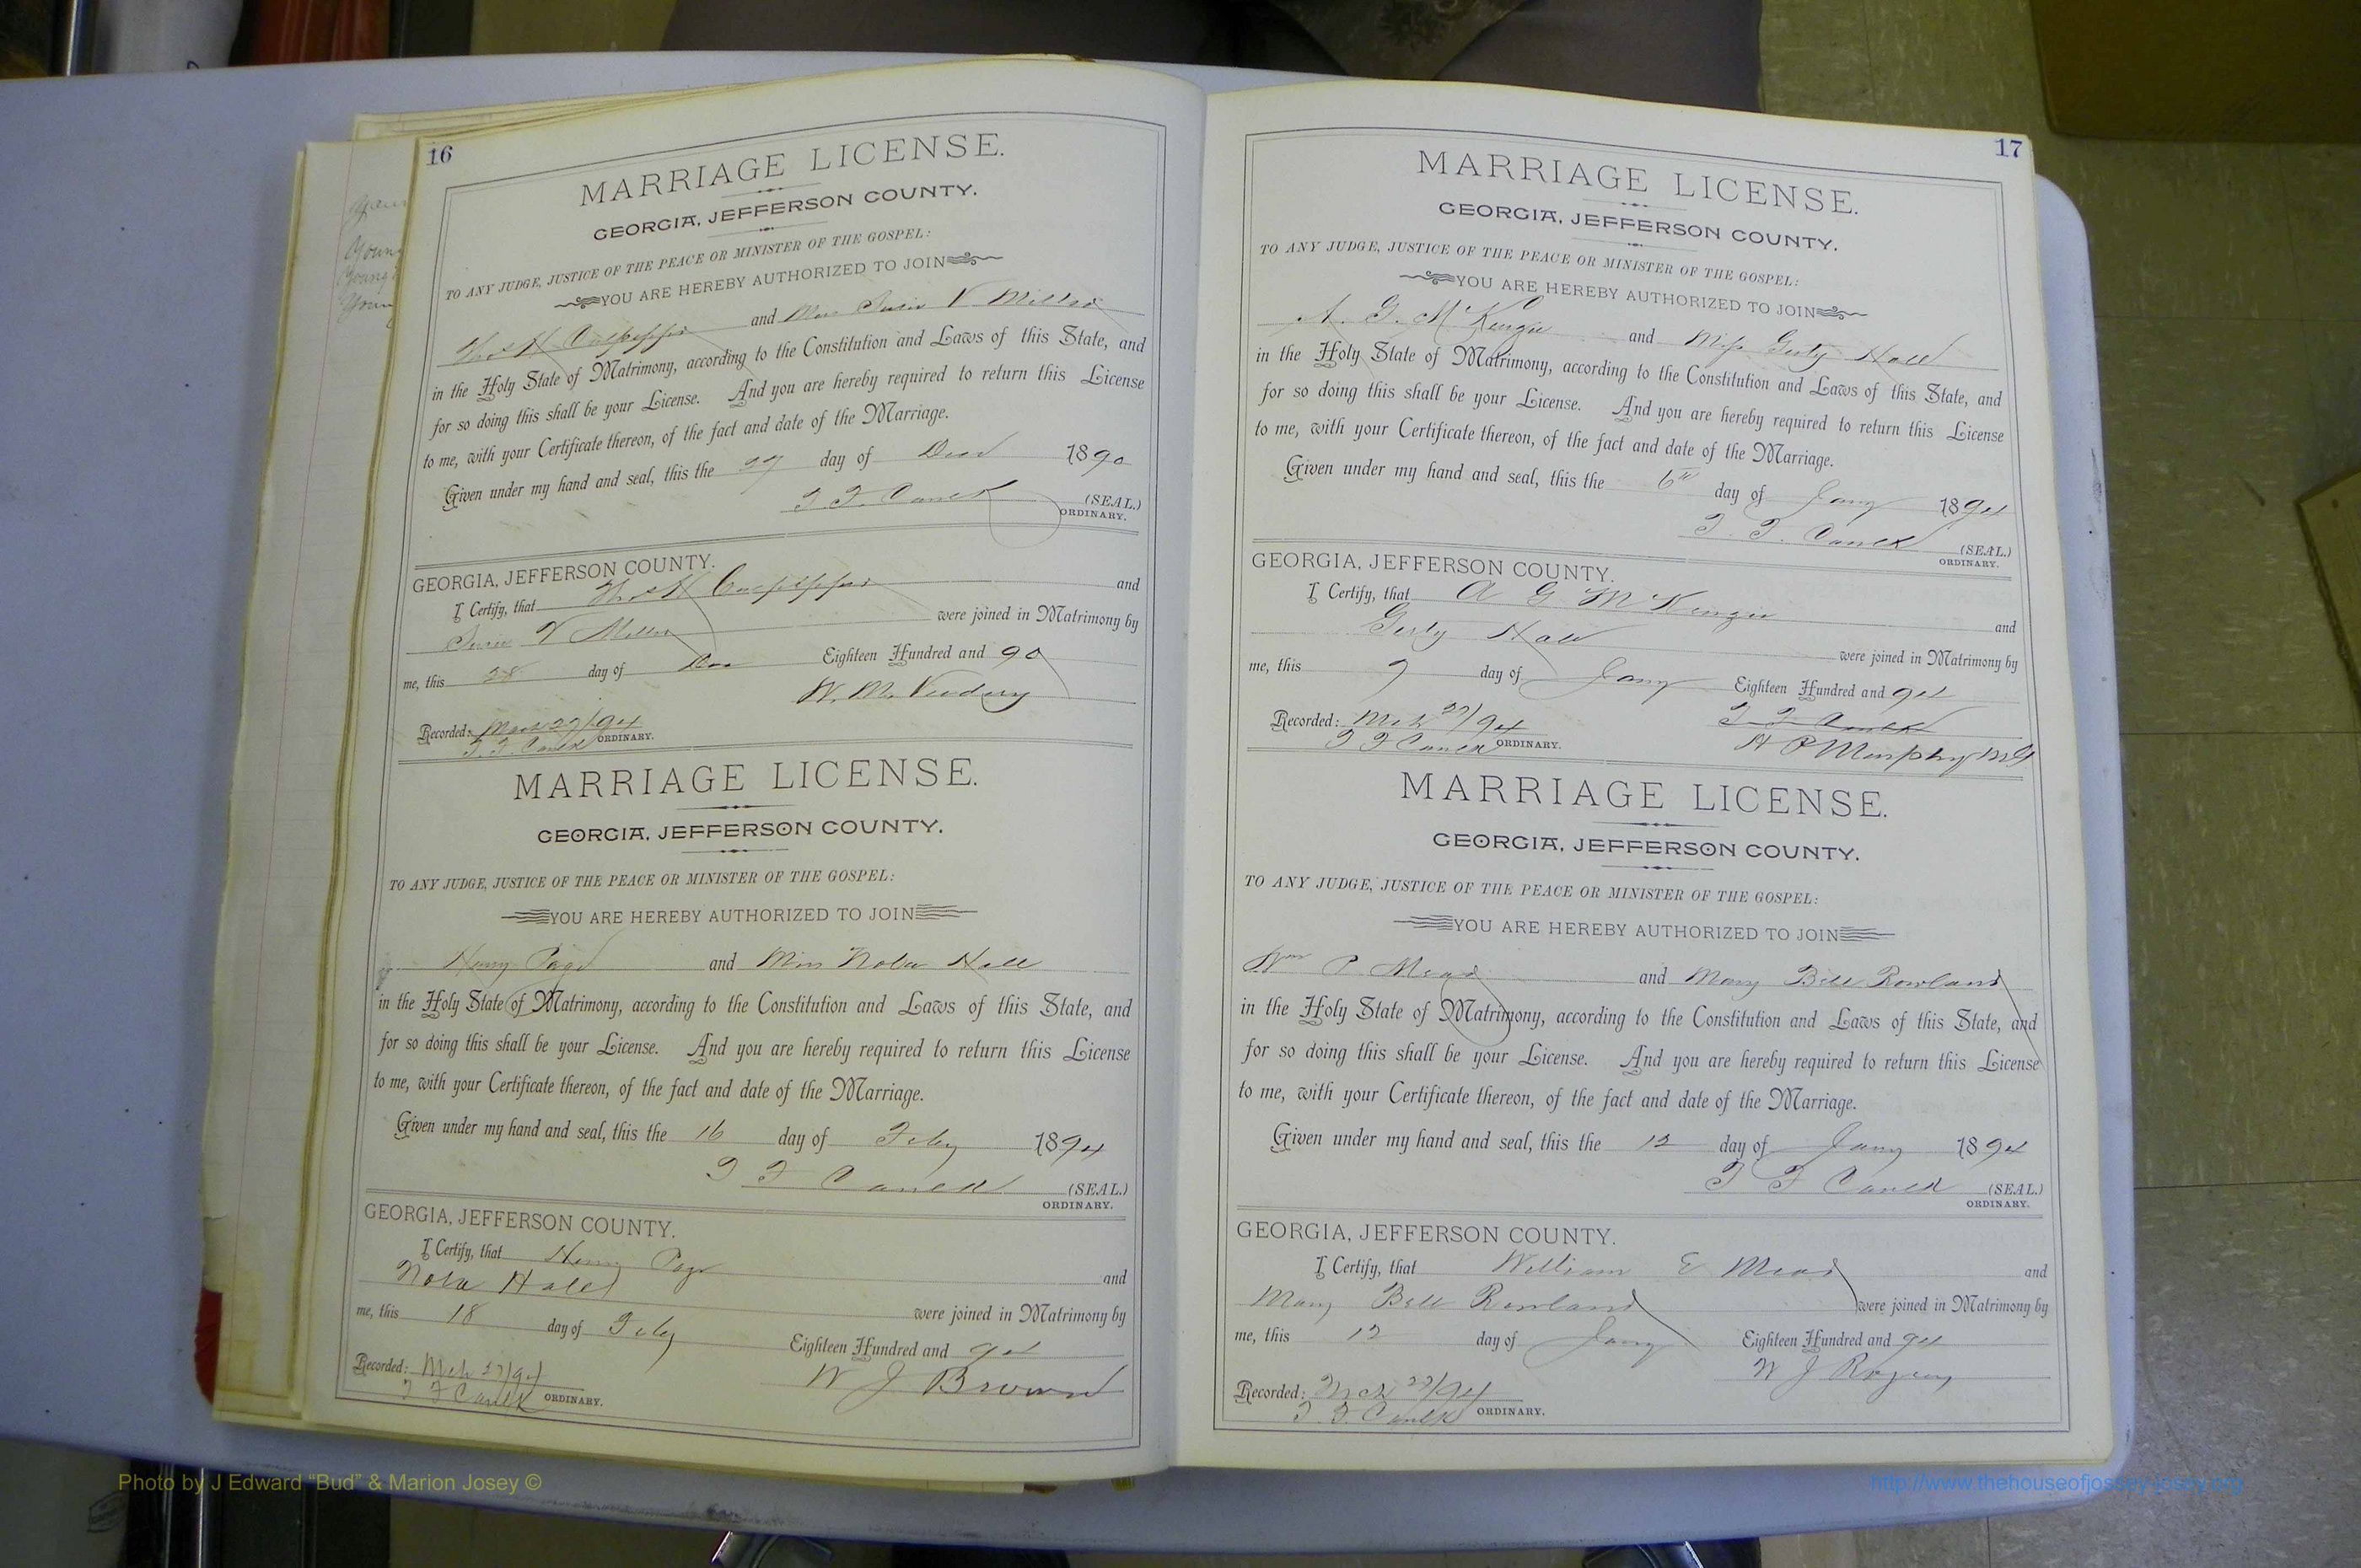 16
MARRIAGE LICENSE.
GEORGIA, JEFFERSON COUNTY.
TO ANY JUDGE, JUSTICE OF THE PEACE OR MINISTER OF THE GOSPEL:
YOU ARE HEREBY AUTHORIZED TO JOIN
Thos H Culpepper and Miss Susie V Miller
in the Holy State of Matrimony, according to the Constitution and Laws of this State, and
for so doing this shall be your License. And you are hereby required to return this License
to me, with your Certificate thereon, of the fact and date of the Marriage.
Given under my hand and seal, this the 27 day of Decr 1890
(SEAL.)
ORDINARY.
GEORGIA, JEFFERSON COUNTY.
I Certify, that Thos H Culpepper and
Susie V Miller were joined in Matrimony by
me, this 28 day of Dec Eighteen Hundred and 90
W. M.
Recorded: March 27/94
ORDINARY.
MARRIAGE LICENSE.
GEORGIA, JEFFERSON COUNTY.
TO ANY JUDGE, JUSTICE OF THE PEACE OR MINISTER OF THE GOSPEL:
YOU ARE HEREBY AUTHORIZED TO JOIN
Henry Page and Miss Nola Hall
in the Holy State of Matrimony, according to the Constitution and Laws of this State, and
for so doing this shall be your License. And you are hereby required to return this License
to me, with your Certificate thereon, of the fact and date of the Marriage.
Given under my hand and seal, this the 16 day of Feby 1894
(SEAL.)
ORDINARY.
GEORGIA, JEFFERSON COUNTY.
I Certify, that Henry Page and
Nola Hall were joined in Matrimony by
me, this 18 day of Feby Eighteen Hundred and 94
W J Brown
Recorded: Mch 27/94
ORDINARY.
17
MARRIAGE LICENSE.
GEORGIA, JEFFERSON COUNTY.
TO ANY JUDGE, JUSTICE OF THE PEACE OR MINISTER OF THE GOSPEL:
YOU ARE HEREBY AUTHORIZED TO JOIN
A. G. McKenzie and Miss Gerty Hall
in the Holy State of Matrimony, according to the Constitution and Laws of this State, and
for so doing this shall be your License. And you are hereby required to return this License
to me, with your Certificate thereon, of the fact and date of the Marriage.
Given under my hand and seal, this the 6th day of Jany 1894
(SEAL.)
ORDINARY.
GEORGIA, JEFFERSON COUNTY.
I Certify, that A G McKenzie and
Gerty Hall were joined in Matrimony by
me, this 7 day of Jany Eighteen Hundred and 94
Murphy M G
Recorded: Mch 27/94
ORDINARY.
MARRIAGE LICENSE.
GEORGIA, JEFFERSON COUNTY.
TO ANY JUDGE, JUSTICE OF THE PEACE OR MINISTER OF THE GOSPEL:
YOU ARE HEREBY AUTHORIZED TO JOIN
Wm P Mead and Mary Bell Rowland
in the Holy State of Matrimony, according to the Constitution and Laws of this State, and
for so doing this shall be your License. And you are hereby required to return this License
to me, with your Certificate thereon, of the fact and date of the Marriage.
Given under my hand and seal, this the 12 day of Jany 1894
(SEAL.)
ORDINARY.
GEORGIA, JEFFERSON COUNTY.
I Certify, that William E Mead and
Mary Bell Rowland were joined in Matrimony by
me, this 12 day of Jany Eighteen Hundred and 94
W J Rogers
Recorded: Mch 27/94
ORDINARY.
Photo by J Edward “Bud” & Marion Josey ©
http://www.thehouseofjossey-josey.org